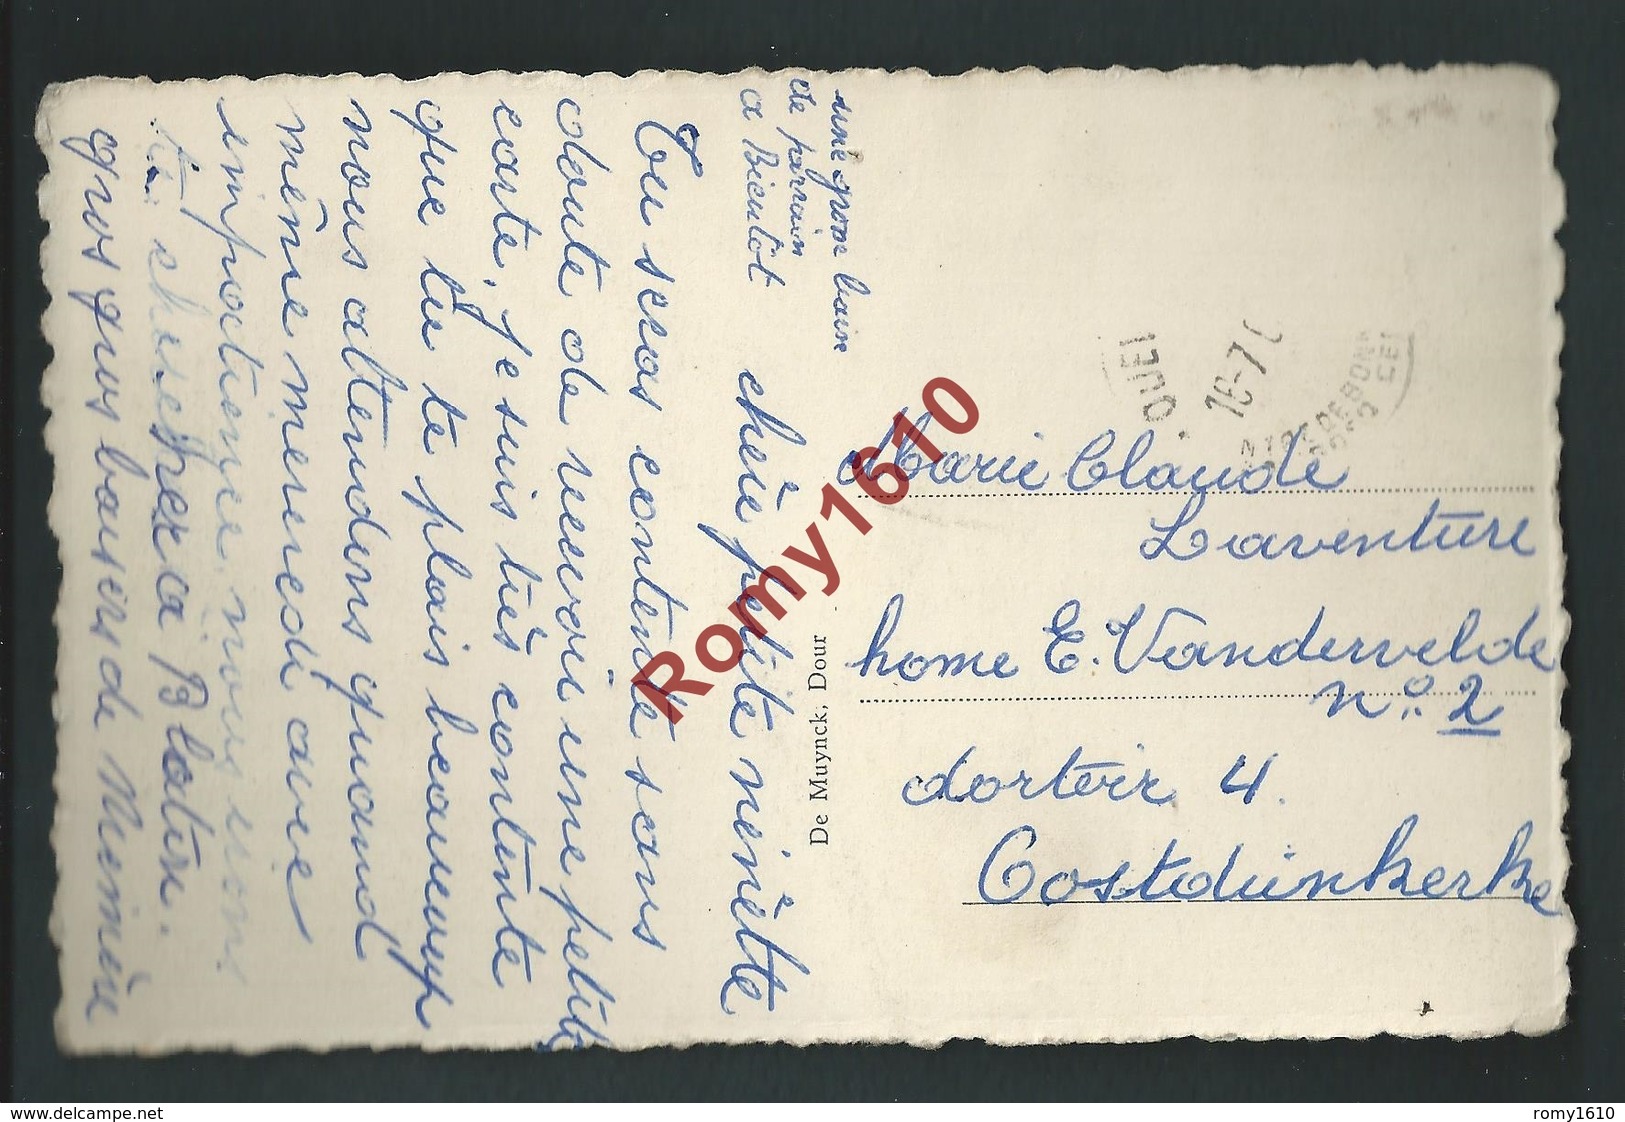 une gross baise
de parrain
a Bientot
chère petite ninètte
Tu seras contente sans
doute de recevoir une petite
carte, je suis très contente
que tu te plais beaucoup
nous attendons quand
même mercredi avec
impatience, nous irons
te chercher a Blaton.
gros gros bousers de Mémère
De Muynck, Dour
Marie Claude
Laventure
home E. Vandervelde
n° 2
dortoir 4.
Oostduinkerke
Romy1610
www.delcampe.net
romy1610